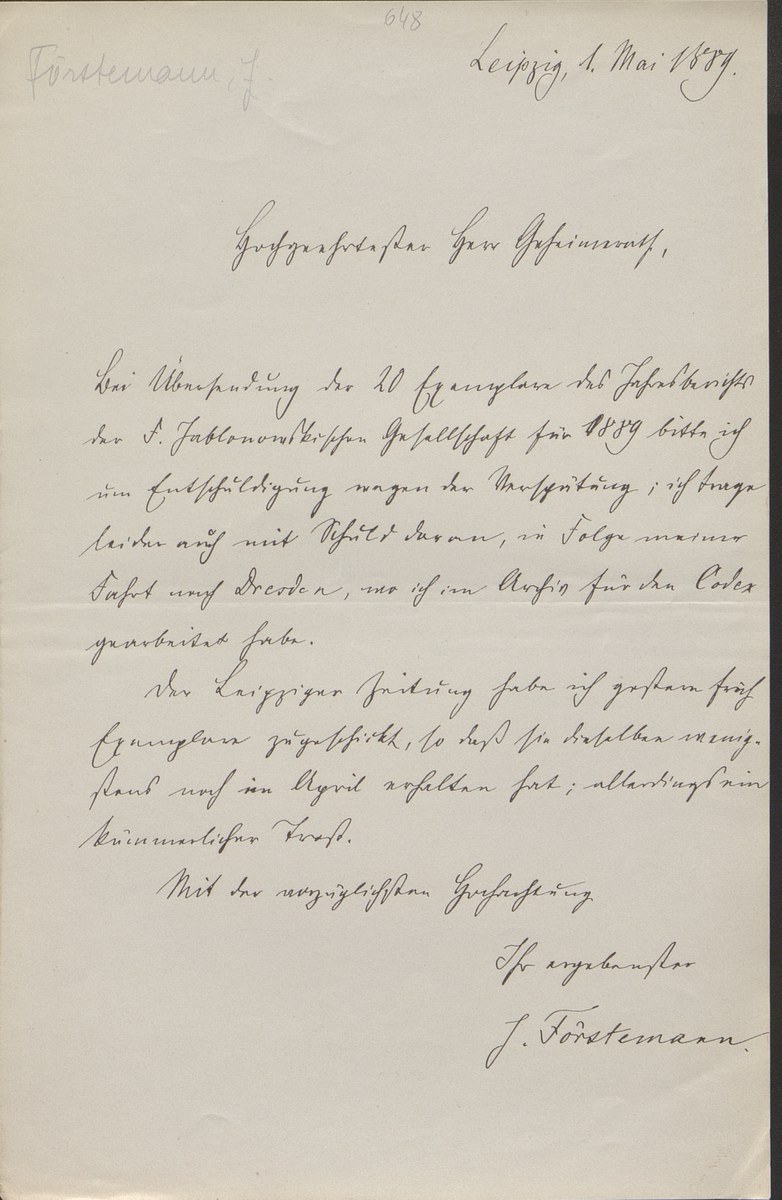 648
Förstemann, J.
Leipzig, 1. Mai 1889.
Hochgeehrtester Herr Geheimerath,
Bei Übersendung der 20 Exemplare des Jahresberichts
der F. Jablonowskischen Gesellschaft für 1889 bitte ich
um Entschuldigung wegen der Verspätung; ich trage
leider auch mit Schuld daran, in Folge meiner
Fahrt nach Dresden, wo ich im Archiv für den Codex
gearbeitet habe.
Der Leipziger Zeitung habe ich gestern früh
Exemplare zugeschickt, so daß sie dieselben wenig-
stens noch im April erhalten hat; allerdings ein
kümmerlicher Trost.
Mit der vorzüglichsten Hochachtung
Ihr ergebenster
J. Förstemann.